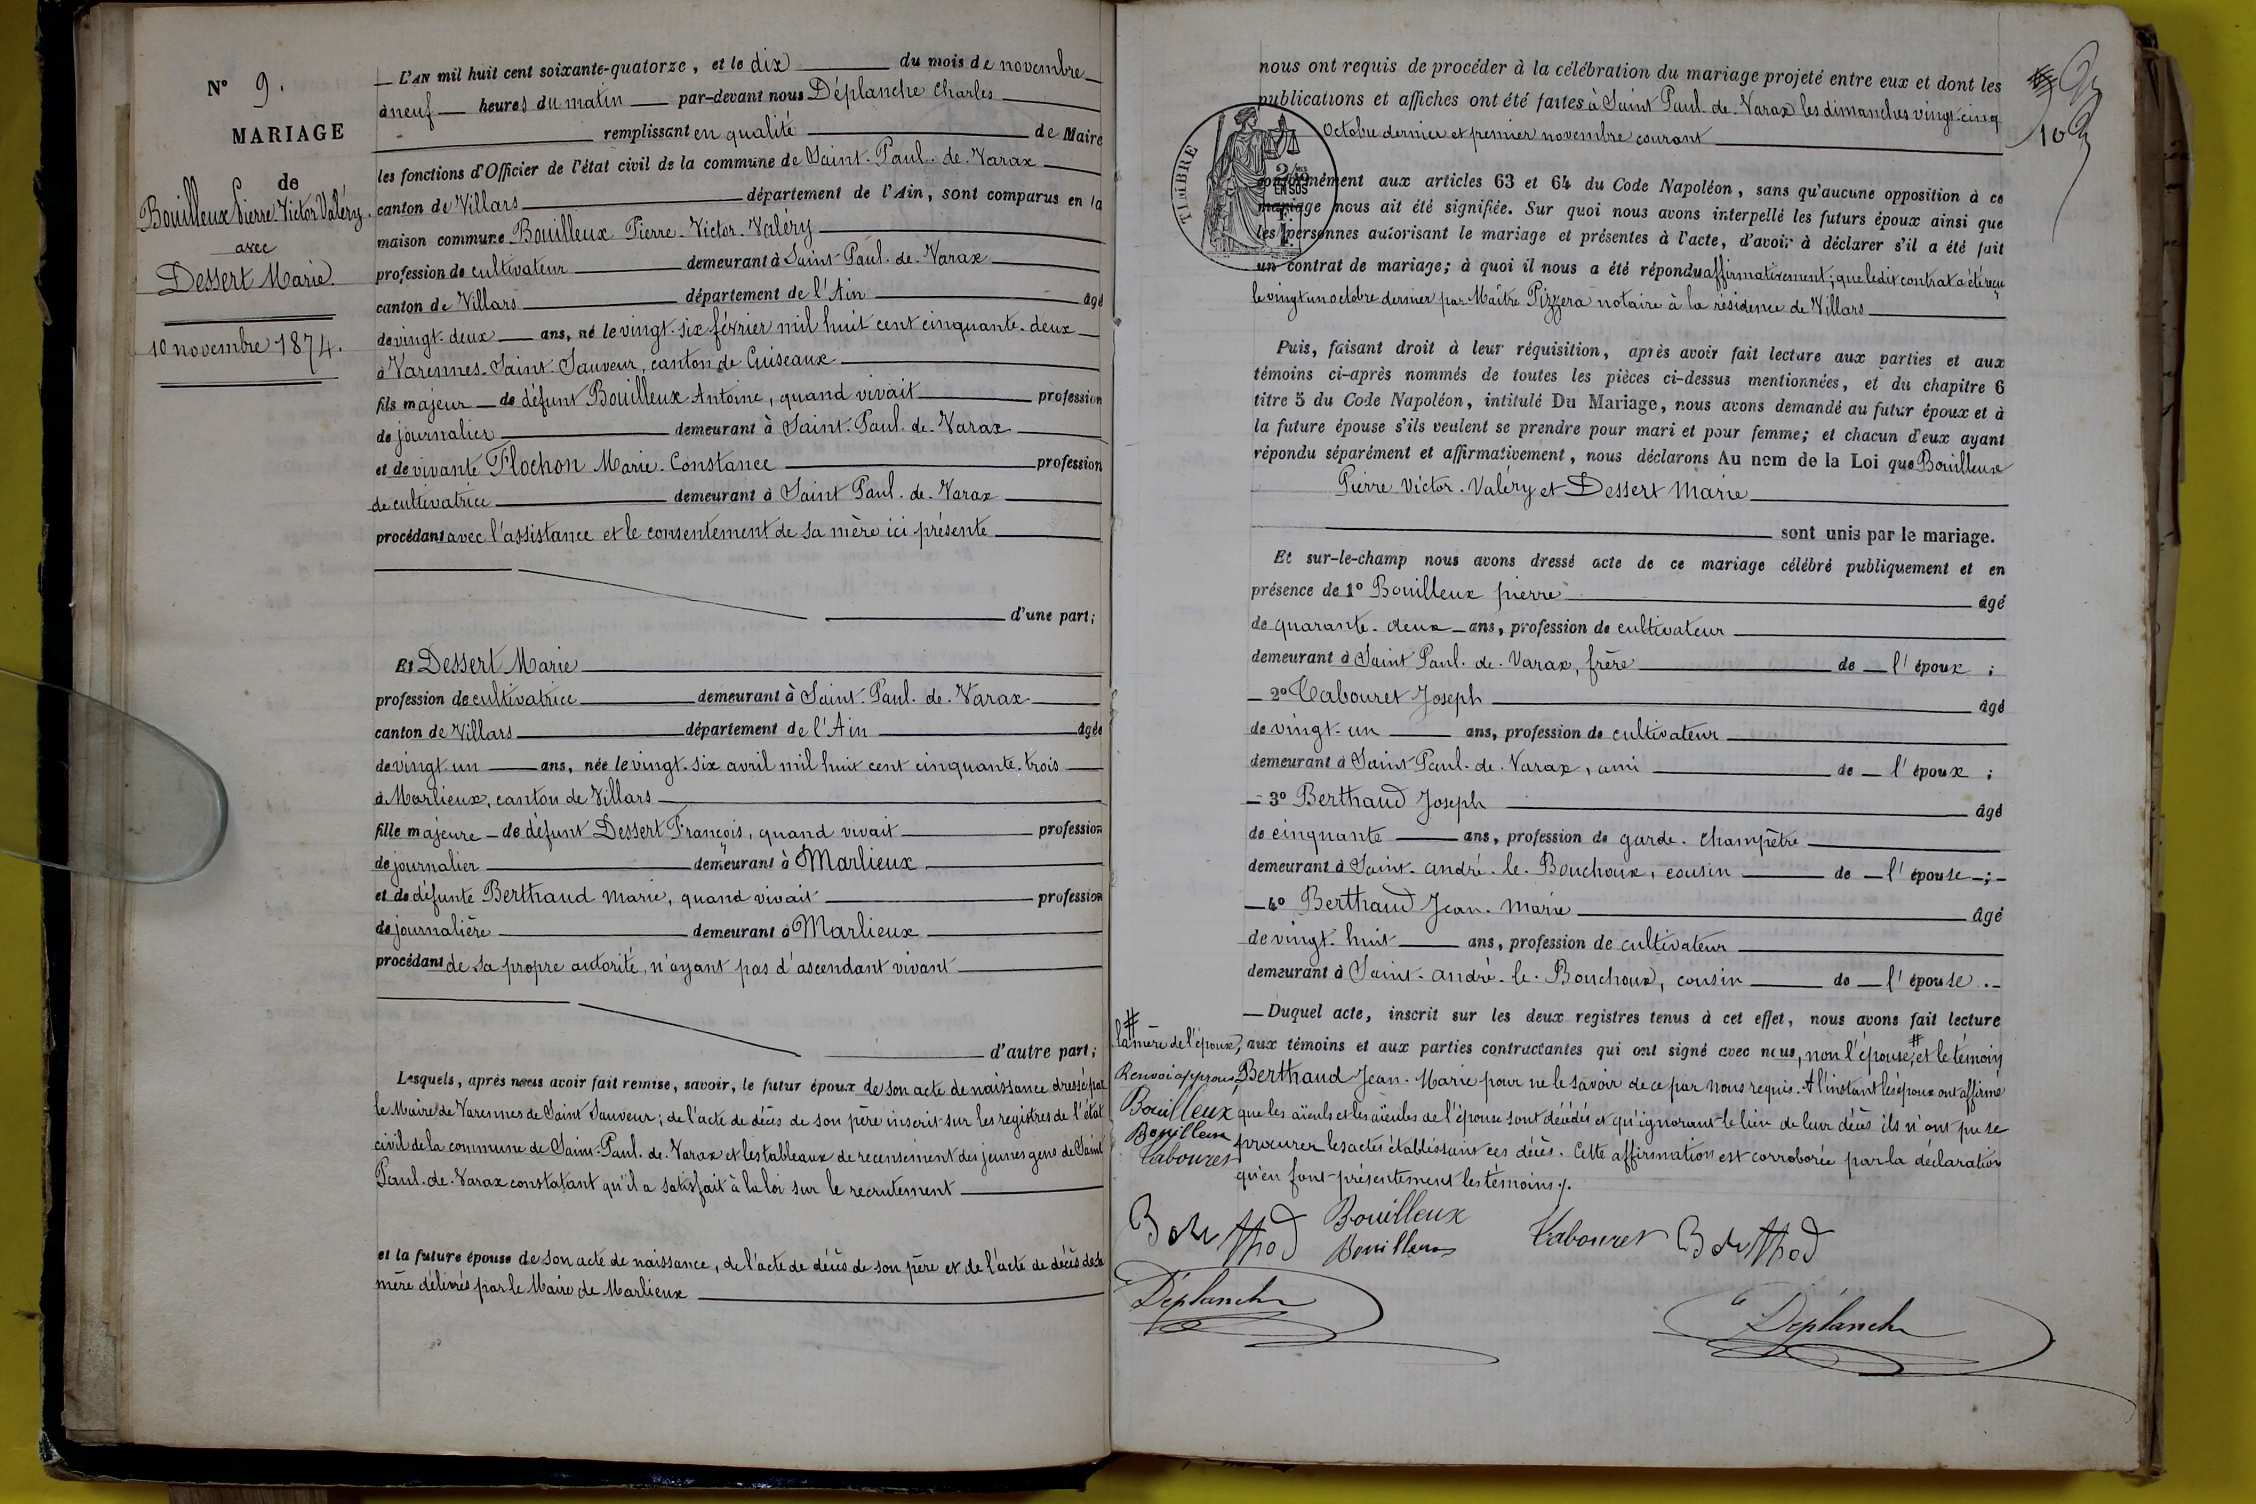 N° 9.
MARIAGE
de
Bouilleux Pierre Victor Valéry.
avec
Dessert Marie.
10 novembre 1874.
L'AN mil huit cent soixante-quatorze, et le dix du mois de novembre
à neuf heures du matin par-devant nous Déplanche Charles
remplissant en qualité de Maire
les fonctions d'Officier de l'état civil de la commune de Saint-Paul-de-Varax
canton de Villars département de l'Ain, sont comparus en la
maison commune Bouilleux Pierre-Victor-Valéry
profession de cultivateur demeurant à Saint-Paul-de-Varax
canton de Villars département de l'Ain âgé
de vingt-deux ans, né le vingt-six février mil huit cent cinquante-deux
à Varennes-Saint-Sauveur, canton de Cuiseaux
fils majeur de défunt Bouilleux Antoine, quand vivait profession
de journalier demeurant à Saint-Paul-de-Varax
et de vivante Flochon Marie-Constance profession
de cultivatrice demeurant à Saint Paul-de-Varax
procédant avec l'assistance et le consentement de sa mère ici présente
d'une part;
Et Dessert Marie
profession de cultivatrice demeurant à Saint-Paul-de-Varax
canton de Villars département de l'Ain âgée
de vingt-un ans, née le vingt-six avril mil huit cent cinquante-trois
à Marlieux, canton de Villars
fille majeure de défunt Dessert François, quand vivait profession
de journalier demeurant à Marlieux
et de défunte Berthaud Marie, quand vivait profession
de journalière demeurant à Marlieux
procédant de sa propre autorité, n'ayant pas d'ascendant vivant
d'autre part;
Lesquels, après nous avoir fait remise, savoir, le futur époux de son acte de naissance dressé par
le Maire de Varennes de Saint Sauveur; de l'acte de décès de son père inscrit sur les registres de l'état
civil de la commune de Saint-Paul-de-Varax et les tableaux de recensement des jeunes gens de Saint
Paul-de-Varax constatant qu'il a satisfait à la loi sur le recrutement
et la future épouse de son acte de naissance, de l'acte de décès de son père et de l'acte de décès de sa
mère délivrés par le Maire de Marlieux
nous ont requis de procéder à la célébration du mariage projeté entre eux et dont les
publications et affiches ont été faites à Saint Paul-de-Varax les dimanches vingt-cinq
Octobre dernier et premier novembre courant
10
TIMBRE
EN SUS
conformément aux articles 63 et 64 du Code Napoléon, sans qu'aucune opposition à ce
mariage nous ait été signifiée. Sur quoi nous avons interpellé les futurs époux ainsi que
les personnes autorisant le mariage et présentes à l'acte, d'avoir à déclarer s'il a été fait
un contrat de mariage; à quoi il nous a été répondu affirmativement; que ledit contrat a été reçu
le vingt un octobre dernier par Maître Pizzera notaire à la résidence de Villars
Puis, faisant droit à leur réquisition, après avoir fait lecture aux parties et aux
témoins ci-après nommés de toutes les pièces ci-dessus mentionnées, et du chapitre 6
titre 5 du Code Napoléon, intitulé Du Mariage, nous avons demandé au futur époux et à
la future épouse s'ils veulent se prendre pour mari et pour femme; et chacun d'eux ayant
répondu séparément et affirmativement, nous déclarons Au nom de la Loi que Bouilleux
Pierre Victor-Valéry et Dessert Marie
sont unis par le mariage.
Et sur-le-champ nous avons dressé acte de ce mariage célébré publiquement et en
présence de 1° Bouilleux pierre âgé
de quarante-deux ans, profession de cultivateur
demeurant à Saint Paul-de-Varax, frère de l'époux;
2° Tabouret Joseph âgé
de vingt-un ans, profession de cultivateur
demeurant à Saint-Paul-de-Varax, ami de l'époux;
3° Berthaud Joseph âgé
de cinquante ans, profession de garde-champêtre
demeurant à Saint-andré-le-Bouchoux, cousin de l'épouse;
4° Berthaud Jean-Marie âgé
de vingt-huit ans, profession de cultivateur
demeurant à Saint-andré-le-Bouchoux, cousin de l'épouse.
Duquel acte, inscrit sur les deux registres tenus à cet effet, nous avons fait lecture
aux témoins et aux parties contractantes qui ont signé avec nous, non l'épouse,# et le témoin
Berthaud Jean-Marie pour ne le savoir de ce par nous requis. A l'instant les époux ont affirmé
que les aïeuls et les aïeules de l'épouse sont décédés et qu'ignorant le lieu de leur décès ils n'ont pu se
procurer les actes établissant ces décès. Cette affirmation est corroborée par la déclaration
qu'en font présentement les témoins.
# la mère de l'époux,
Renvoi approuvé
Bouilleux
Bouilleux
Tabouret
Berthod Bouilleux Tabouret Berthod
Bouilleux
Déplanche
C Déplanche